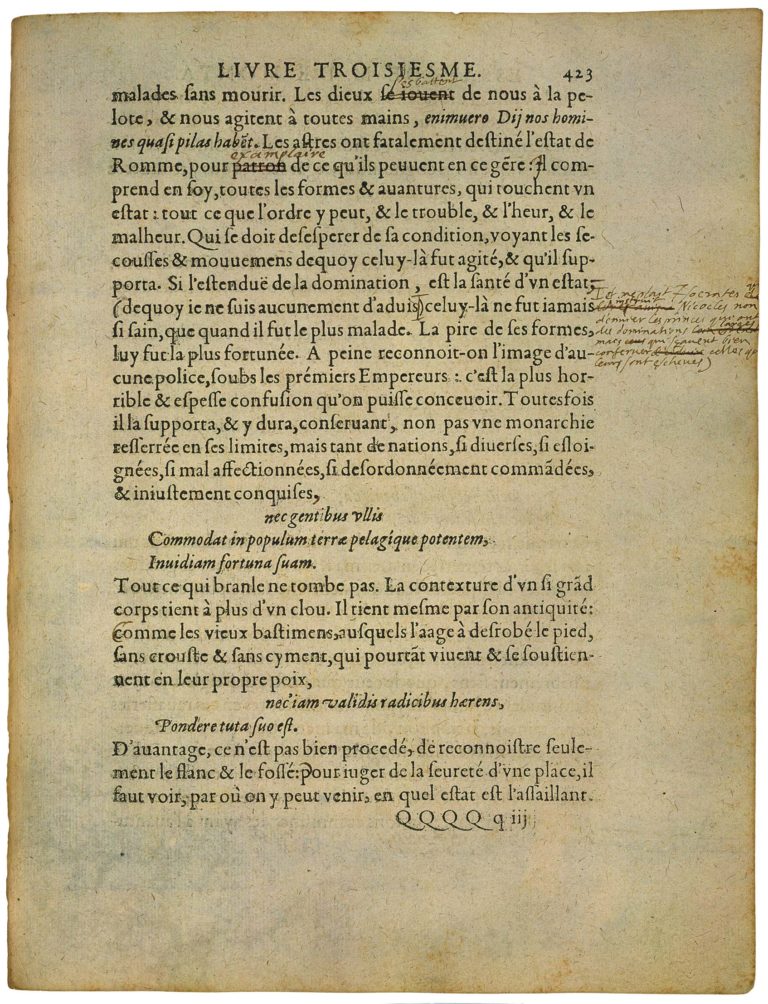 LIVRE TROISIESME. 423
s'esbattent
malades sans mourir. Les dieux se iouent de nous à la pe-
lote, & nous agitent à toutes mains, enimuero Dij nos homi-
nes quasi pilas habẽt. Les astres ont fatalement destiné l'estat de
exemplaire
Romme, pour patron de ce qu'ils peuuent en ce gẽre: Il com-
prend en soy, toutes les formes & auantures, qui touchent vn
estat: tout ce que l'ordre y peut, & le trouble, & l'heur, & le
malheur. Qui se doit desesperer de sa condition, voyant les se-
cousses & mouuemens dequoy celuy-là fut agité, & qu'il sup-
porta. Si l'estenduë de la domination, est la santé d'vn estat,
(dequoy ie ne suis aucunement d'aduis) celuy-là ne fut iamais
si sain, que quand il fut le plus malade. La pire de ses formes,
luy fut la plus fortunée. A peine reconnoit-on l'image d'au-
cune police, soubs les prémiers Empereurs: c'est la plus hor-
rible & espesse confusion qu'on puisse conceuoir. Toutesfois
il la supporta, & y dura, conseruant, non pas vne monarchie
resserrée en ses limites, mais tant de nations, si diuerses, si esloi-
gnées, si mal affectionnées, si desordonnéement commãdées,
& iniustement conquises,
nec gentibus vllis
Commodat in populum terræ pelagique potentem,
Inuidiam fortuna suam.
Tout ce qui branle ne tombe pas. La contexture d'vn si grãd
corps tient à plus d'vn clou. Il tient mesme par son antiquité:
comme les vieux bastimens, ausquels l'aage à desrobé le pied,
sans crouste & sans cyment, qui pourtãt viuent & se soustien-
nent en leur propre poix,
nec iam validis radicibus hærens,
Pondere tuta suo est.
D'auantage, ce n'est pas bien procedé, de reconnoistre seule-
ment le flanc & le fossé: pour iuger de la seureté d'vne place, il
faut voir, par où on y peut venir, en quel estat est l'assaillant.
QQQQ q iij
Et me plaist Isocrates
Nicocles non
d'enuier les princes qui ont
des dominations larges
mais qui sçauent bien
conseruer celles qui
leurs sont escheues)